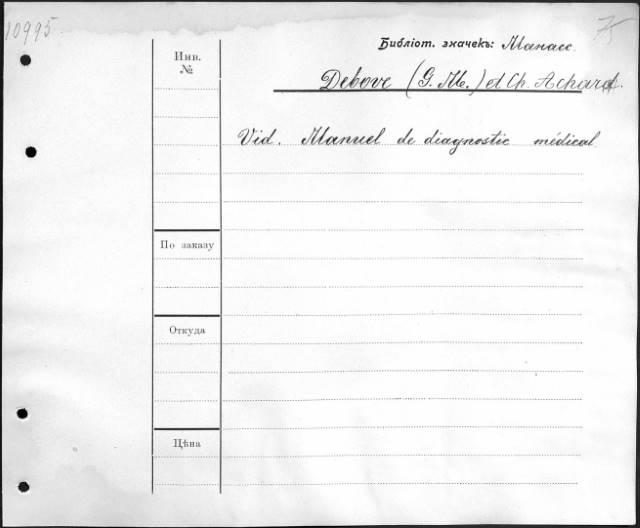 10995.
75
Библіот. значекъ: Манасс.
Инв.
№
Debove (G. M.) et Ch. Achard.
Vid. Manuel de diagnostic médical
По заказу
Откуда
Цѣна